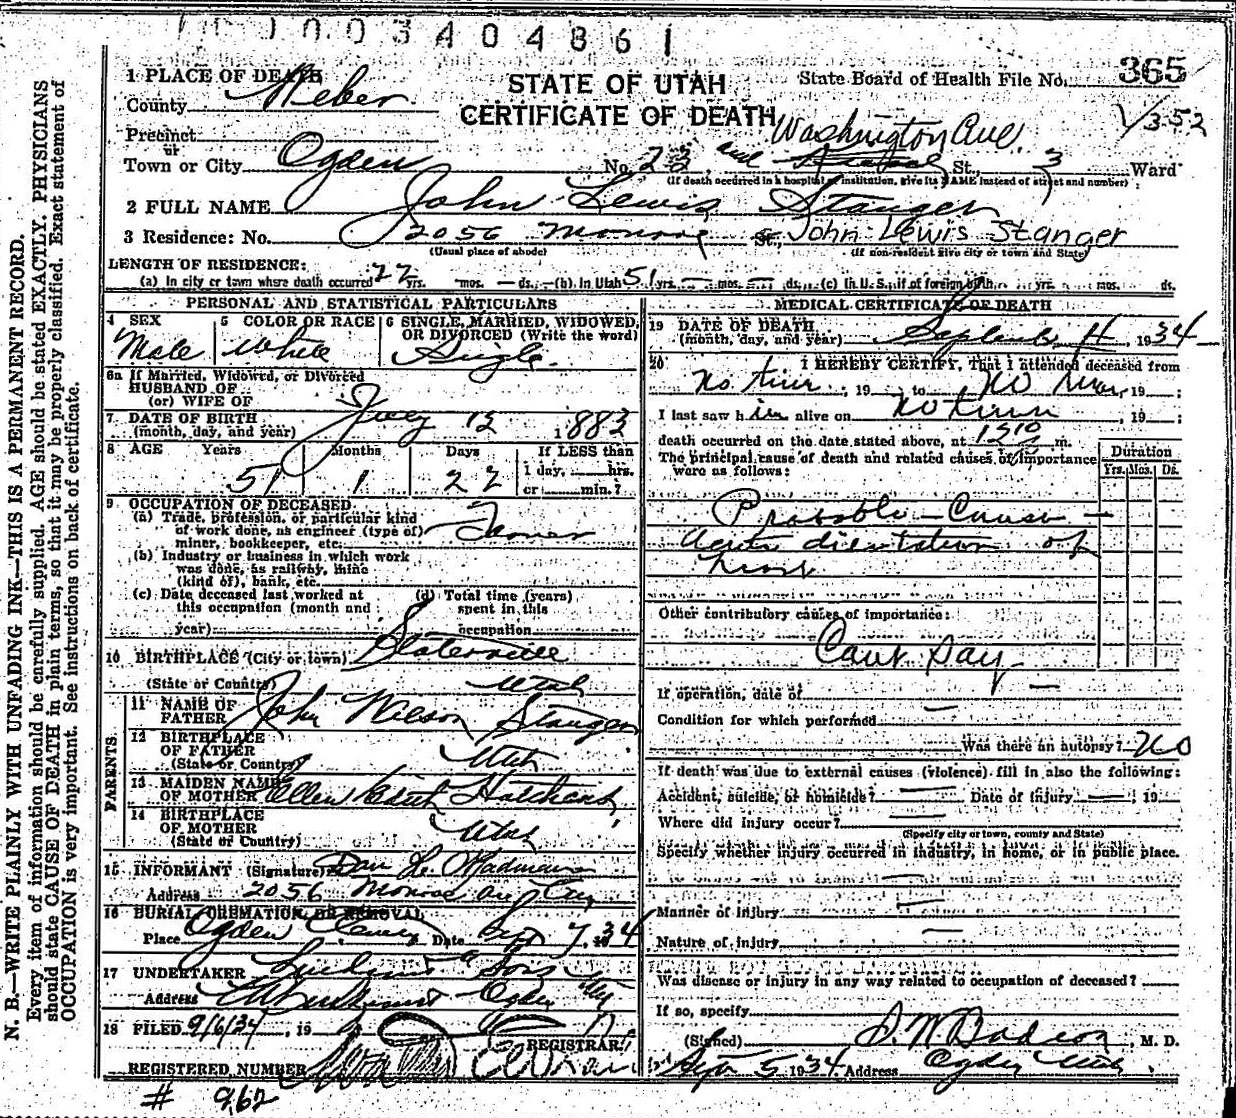 1003404861
1 PLACE OF DEATH
County Weber
STATE OF UTAH
CERTIFICATE OF DEATH
State Board of Health File No. 365
1/352
Precinct
or
Town or City Ogden No. 23 and Washington Ave. St., 3 Ward
(If death occurred in a hospital or institution, give its NAME instead of street and number)
2 FULL NAME John Lewis Stanger
3 Residence: No. 2056 Monroe St., John Lewis Stanger
(Usual place of abode) (If non-resident give city or town and State)
LENGTH OF RESIDENCE:
(a) In city or town where death occurred 22 yrs. mos. ds. (b) In Utah 51 yrs. mos. ds. (c) In U. S., if of foreign birth yrs. mos. ds.
PERSONAL AND STATISTICAL PARTICULARS
4 SEX 5 COLOR OR RACE 6 SINGLE, MARRIED, WIDOWED,
OR DIVORCED (Write the word)
Male White Single
6a If Married, Widowed, or Divorced
HUSBAND OF
(or) WIFE OF
7 DATE OF BIRTH
(month, day, and year) July 12 1883
8 AGE Years Months Days If LESS than
1 day, hrs.
51 1 22 or min.?
9 OCCUPATION OF DECEASED
(a) Trade, profession, or particular kind
of work done, as engineer (type of)
miner, bookkeeper, etc.
(b) Industry or business in which work
was done, as railway, mine
(kind of), bank, etc.
(c) Date deceased last worked at (d) Total time (years)
this occupation (month and spent in this
year) occupation
10 BIRTHPLACE (City or town) Slaterville
(State or Country) Utah
PARENTS
11 NAME OF
FATHER John Wilson Stanger
12 BIRTHPLACE
OF FATHER
(State or Country) Utah
13 MAIDEN NAME
OF MOTHER Ellen Edith Hutchens
14 BIRTHPLACE
OF MOTHER
(State or Country) Utah
15 INFORMANT (Signature)
Address 2056 Monroe Ave City
16 BURIAL, CREMATION, OR REMOVAL
Place Ogden Date Sept 7, 1934
17 UNDERTAKER & Sons
Address Ogden Utah
18 FILED 9/6/34, 19
REGISTRAR
REGISTERED NUMBER
# 962
MEDICAL CERTIFICATE OF DEATH
19 DATE OF DEATH
(month, day, and year) September 4, 1934
20 I HEREBY CERTIFY, That I attended deceased from
no time, 19 to no time, 19 ;
I last saw him alive on no time, 19 ;
death occurred on the date stated above, at m.
The principal cause of death and related causes of importance
were as follows:
Duration
Yrs. Mos. Ds.
Probable Cause
acute dilatation of
heart
Other contributory causes of importance:
Cant Say
If operation, date of
Condition for which performed
Was there an autopsy? No
If death was due to external causes (violence) fill in also the following:
Accident, suicide, or homicide? Date of injury , 19
Where did injury occur?
(Specify city or town, county and State)
Specify whether injury occurred in industry, in home, or in public place.
Manner of injury
Nature of injury
Was disease or injury in any way related to occupation of deceased?
If so, specify
(Signed) , M. D.
Sept 5 1934 Address Ogden Utah
N. B.—WRITE PLAINLY WITH UNFADING INK—THIS IS A PERMANENT RECORD.
Every item of information should be carefully supplied. AGE should be stated EXACTLY. PHYSICIANS
should state CAUSE OF DEATH in plain terms, so that it may be properly classified. Exact statement of
OCCUPATION is very important. See instructions on back of certificate.